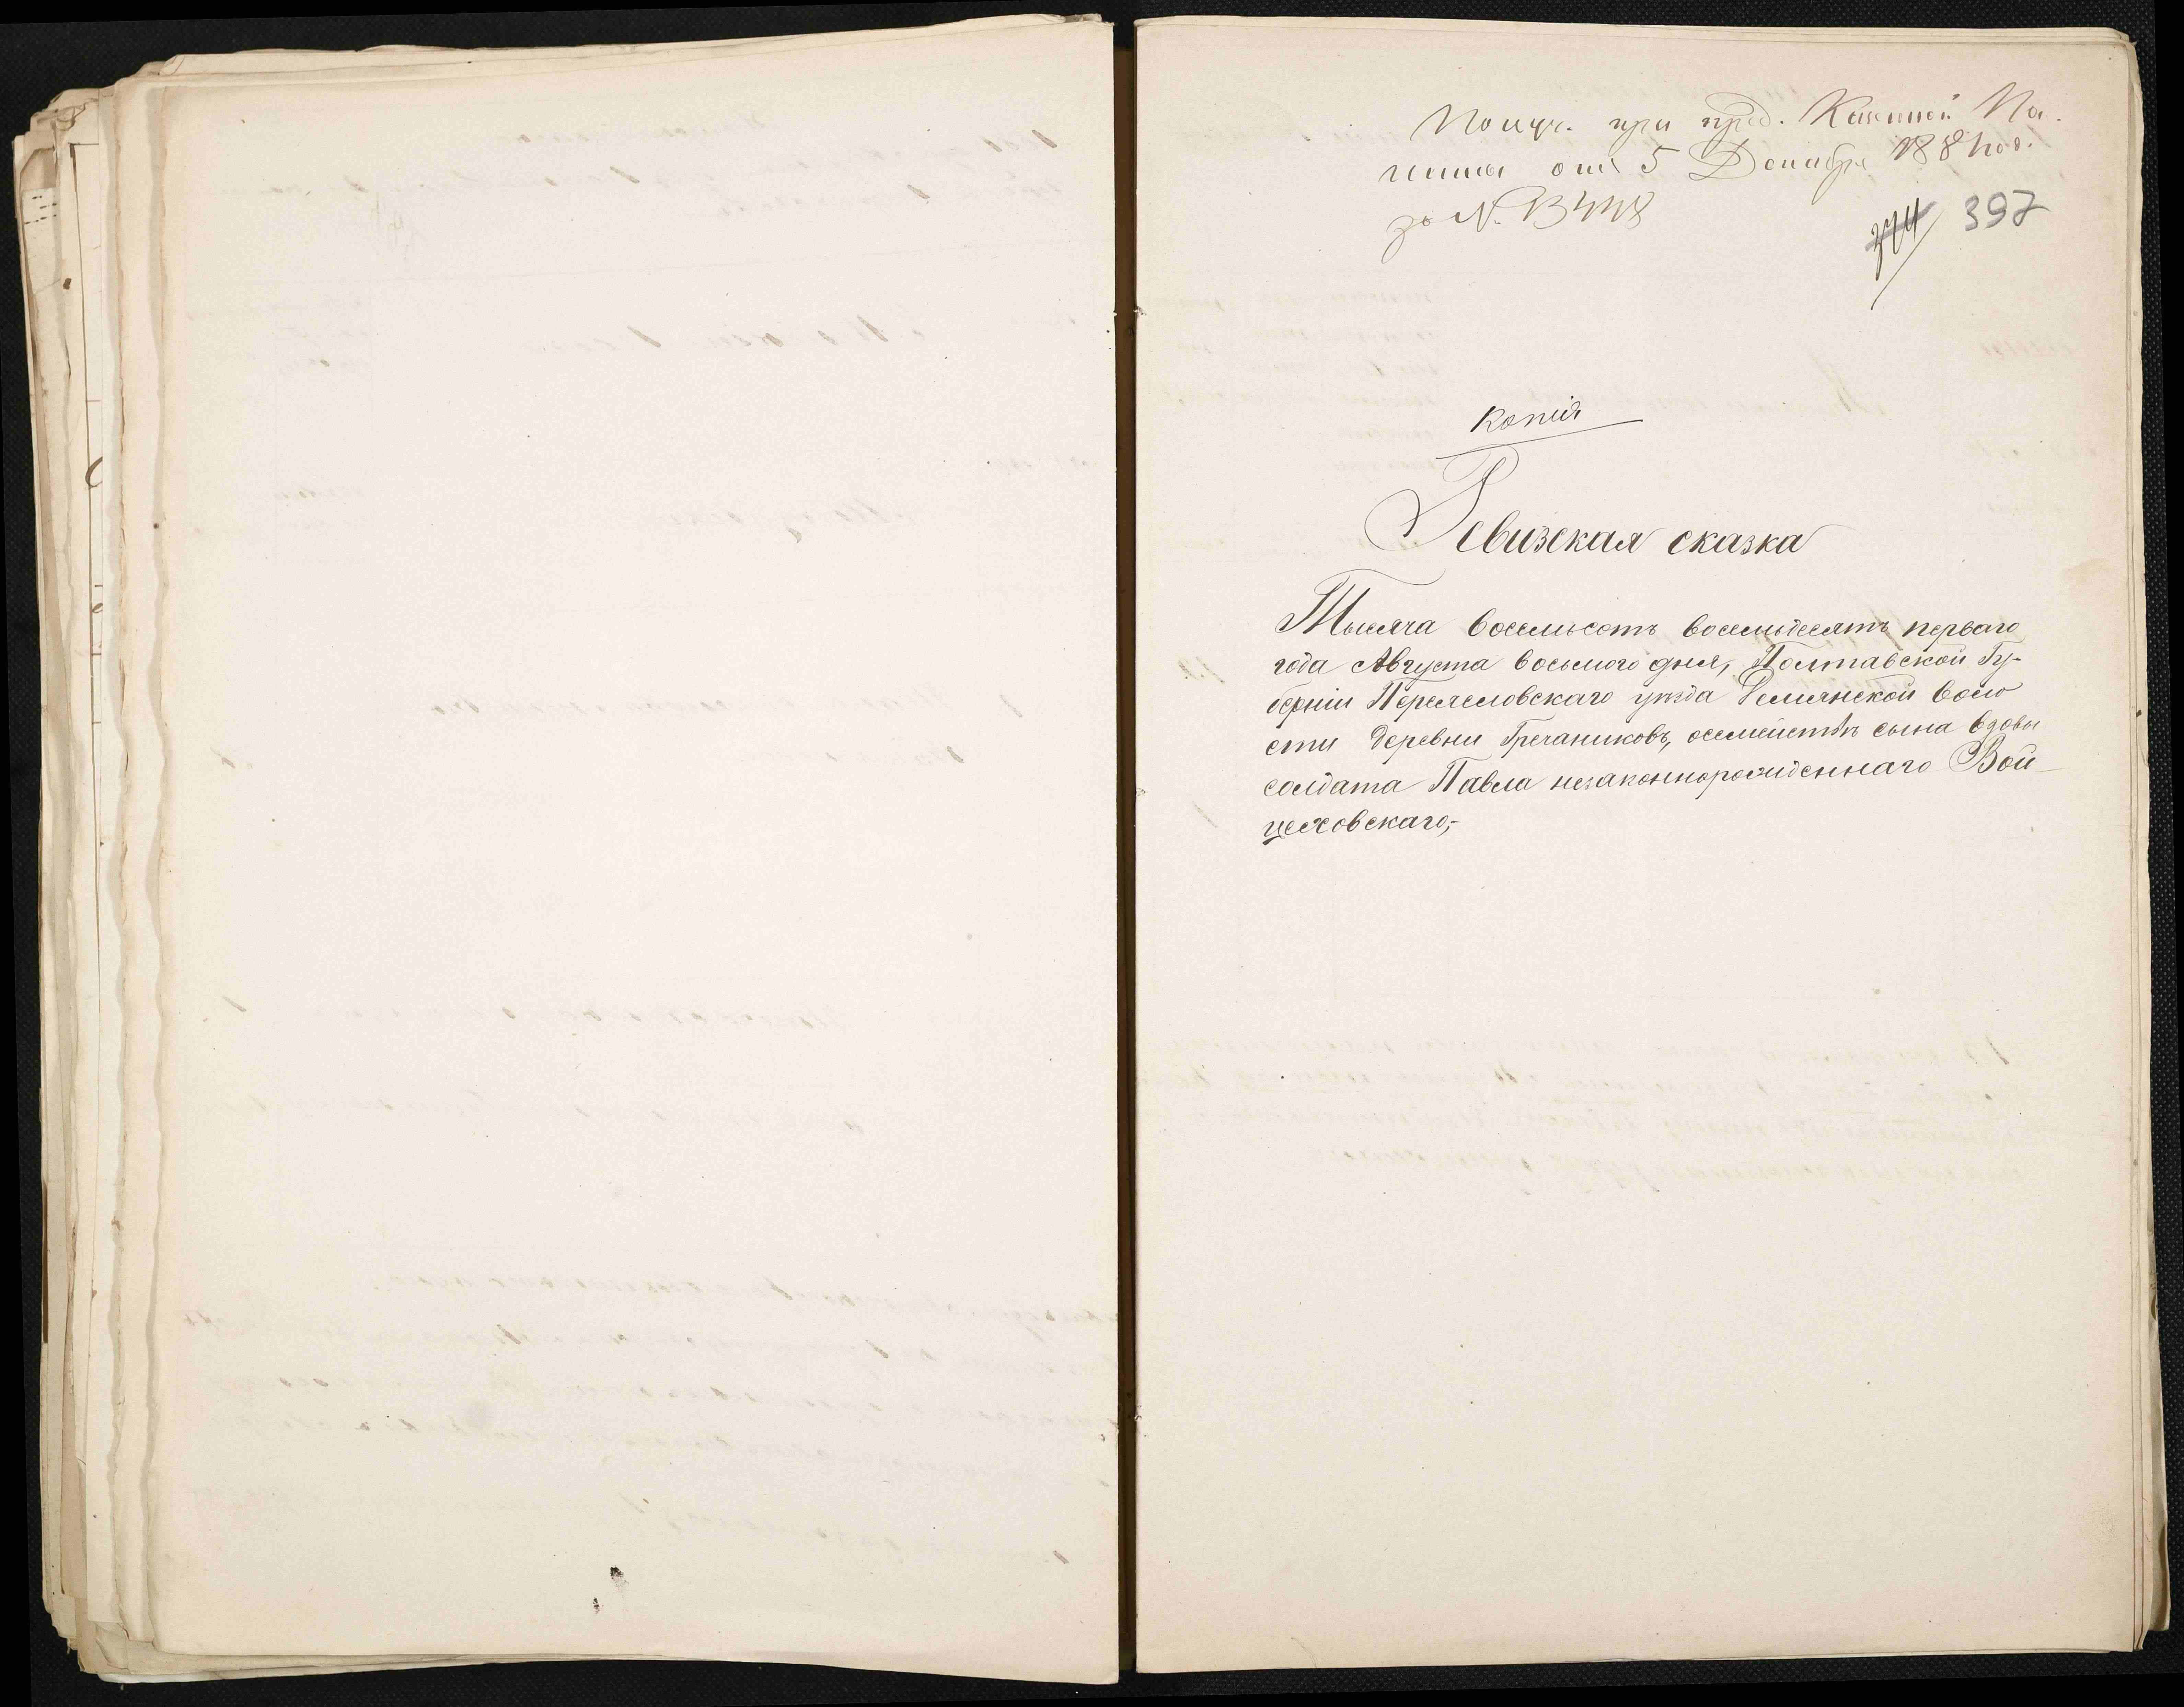 Получ. при пред. Казенной Па-
латы отъ 5 Декабря 1881 год.
за N. 13448
274 397
Копія
Ревизская сказка
Тысяча восемьсотъ восемьдесятъ перваго
года Августа восьмого дня, Полтавской Гу-
берніи Переяславскаго уѣзда Гельмязской воло
сти деревни Гречаниковъ, осемействѣ сына вдовы
солдата Павла незаконнорожденнаго Вой-
цеховскаго,-